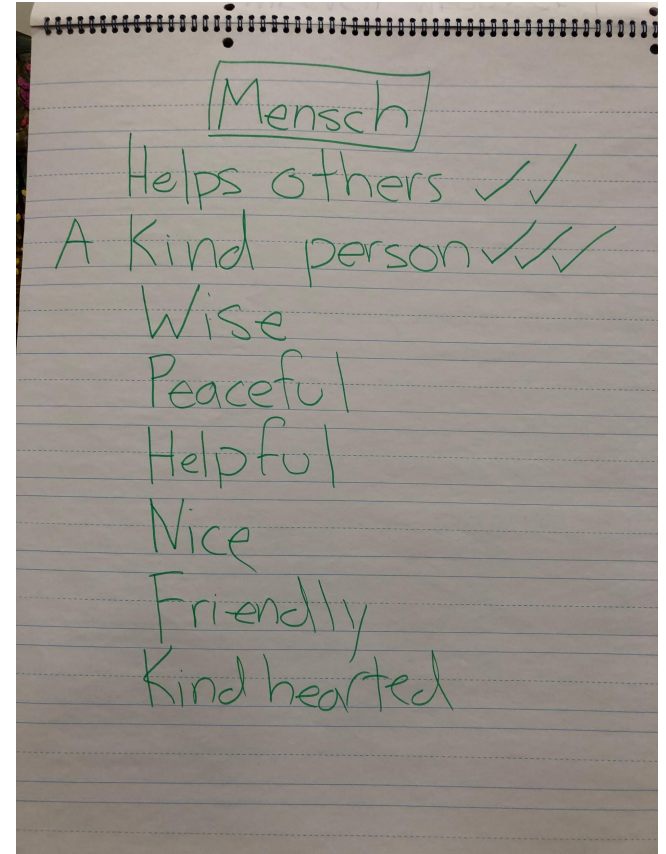 Mensch
Helps others ✓✓
A Kind person ✓✓✓
Wise
Peaceful
Helpful
Nice
Friendly
Kind hearted